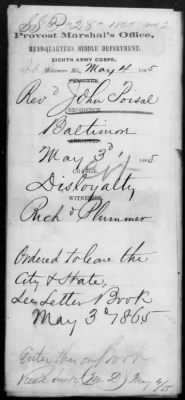 Provost Marshal's Office,
HEAD-QUARTERS MIDDLE DEPARTMENT,
EIGHTH ARMY CORPS.
Baltimore, May 4 1865
Rev'd John Poisal
RESIDENCE
Baltimore
ARRESTED
May 3d 1865
CHARGE
Disloyalty
WITNESSES
Rich'd Plummer
Ordered to leave the
City & State,
See Letter Book
May 3d 1865
Enter this on Book
May 4/65